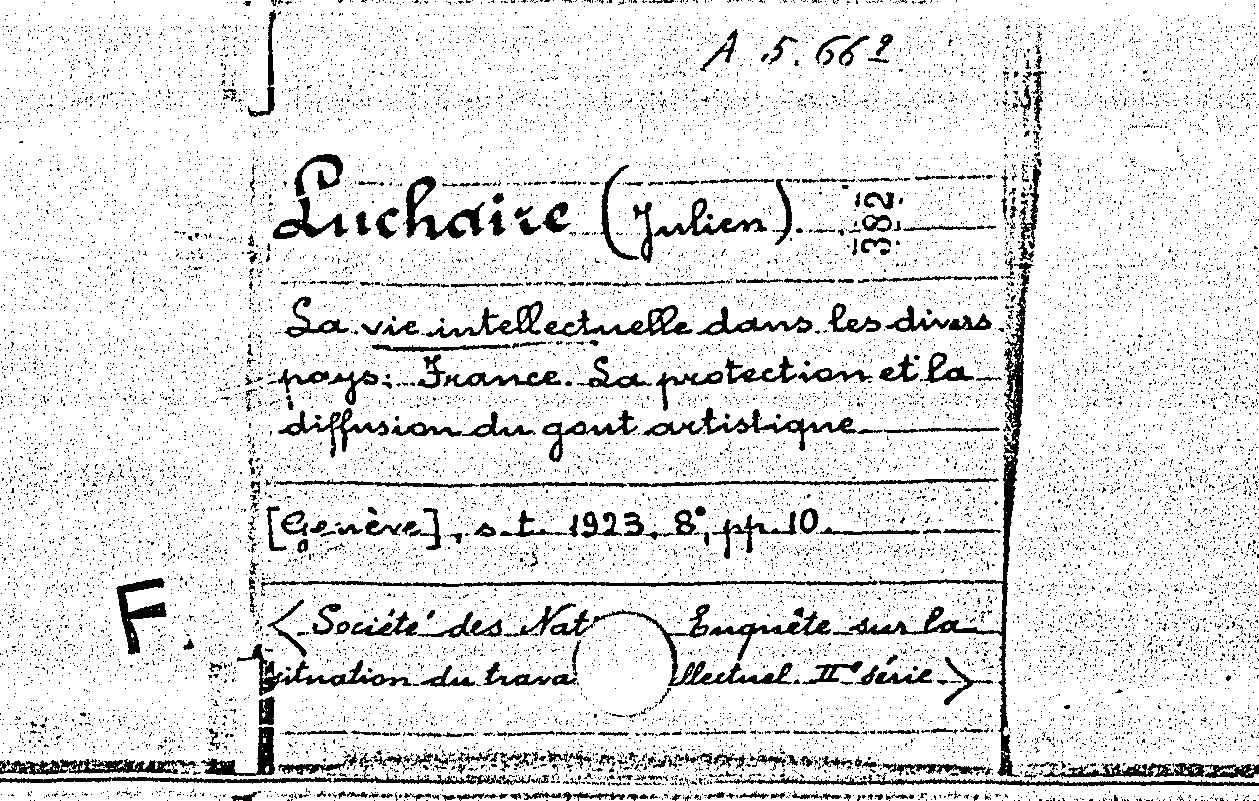 A 5.662
Luchaire (Julien).
382
La vie intellectuelle dans les divers
pays: France. La protection et la
diffusion du gout artistique
[Genève], s.t. 1923. 8°, pp. 10.
F.
< Société des Nat Enquête sur la
situation du trava llectuel. IIe série >